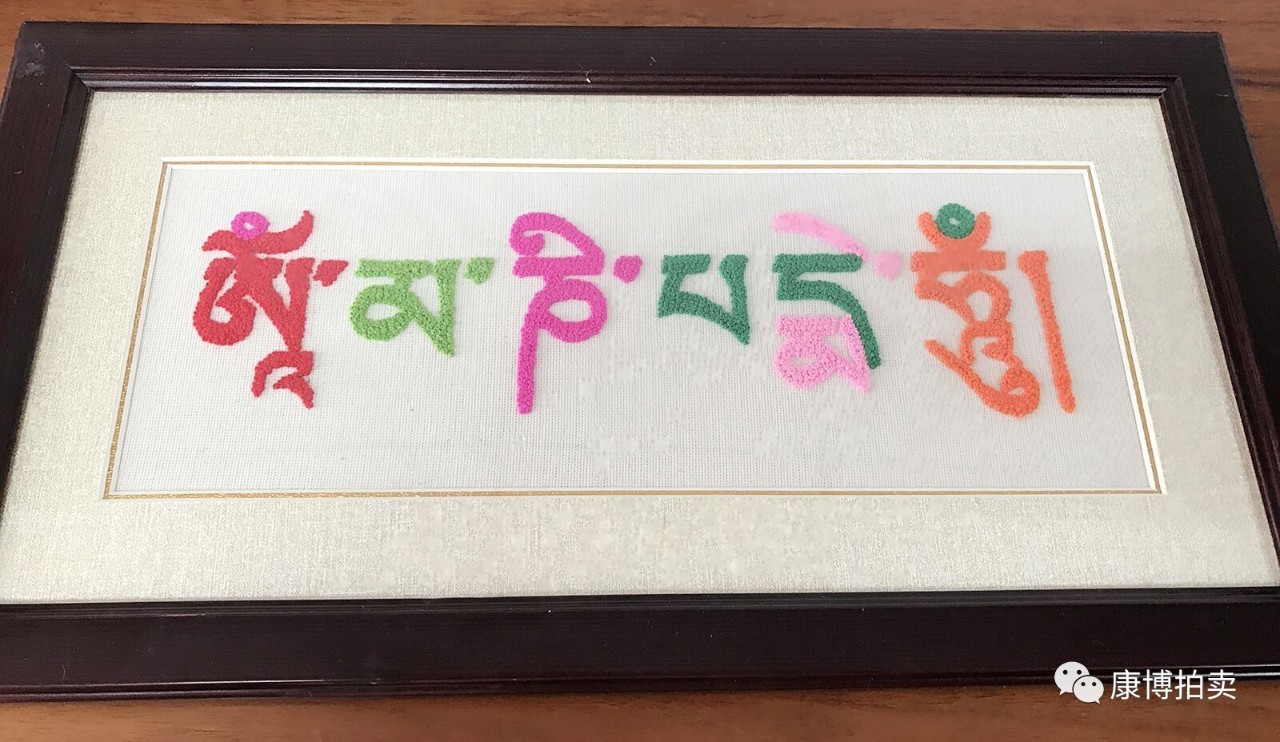 ༀ་མ་ཎི་པདྨེ་ཧཱུྃ།
康博拍卖